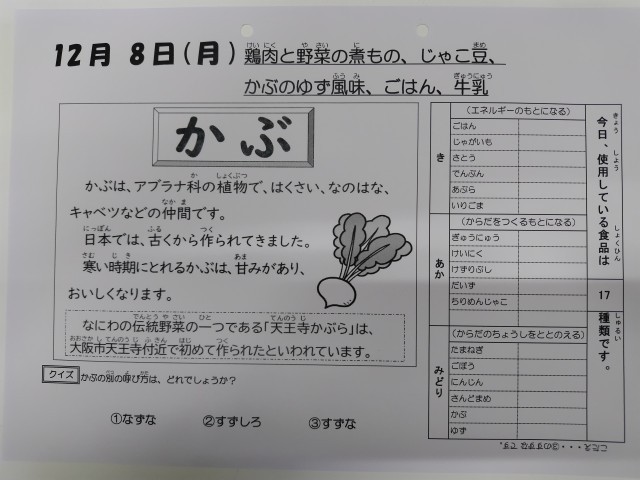 12月 8日(月) 鶏肉と野菜の煮もの、じゃこ豆、
かぶのゆず風味、ごはん、牛乳
かぶ
かぶは、アブラナ科の植物で、はくさい、なのはな、
キャベツなどの仲間です。
日本では、古くから作られてきました。
寒い時期にとれるかぶは、甘みがあり、
おいしくなります。
なにわの伝統野菜の一つである「天王寺かぶら」は、
大阪市天王寺付近で初めて作られたといわれています。
クイズ かぶの別の呼び方は、どれでしょうか？
①なずな ②すずしろ ③すずな
今日、使用している食品は
17
種類です。
き
(エネルギーのもとになる)
ごはん
じゃがいも
さとう
でんぷん
あぶら
いりごま
あか
(からだをつくるもとになる)
ぎゅうにゅう
けいにく
けずりぶし
だいず
ちりめんじゃこ
みどり
(からだのちょうしをととのえる)
たまねぎ
ごぼう
にんじん
さんどまめ
かぶ
ゆず
こたえ・・・③のすずなです。